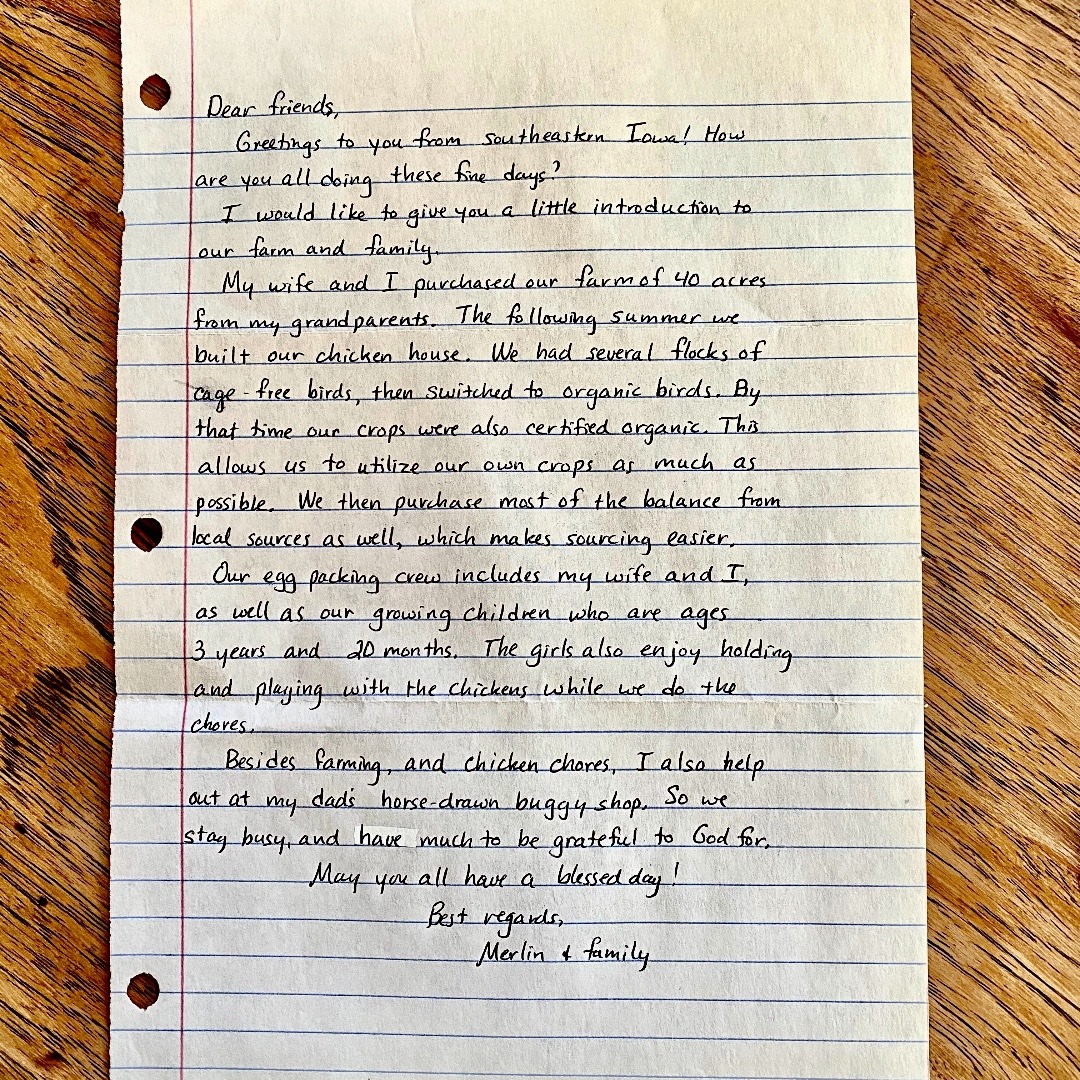 Dear friends,
Greetings to you from southeastern Iowa! How
are you all doing these fine days?
I would like to give you a little introduction to
our farm and family.
My wife and I purchased our farm of 40 acres
from my grandparents. The following summer we
built our chicken house. We had several flocks of
cage-free birds, then switched to organic birds. By
that time our crops were also certified organic. This
allows us to utilize our own crops as much as
possible. We then purchase most of the balance from
local sources as well, which makes sourcing easier.
Our egg packing crew includes my wife and I,
as well as our growing children who are ages
3 years and 20 months. The girls also enjoy holding
and playing with the chickens while we do the
chores.
Besides farming, and chicken chores, I also help
out at my dad's horse-drawn buggy shop. So we
stay busy, and have much to be grateful to God for.
May you all have a blessed day!
Best regards,
Merlin & family